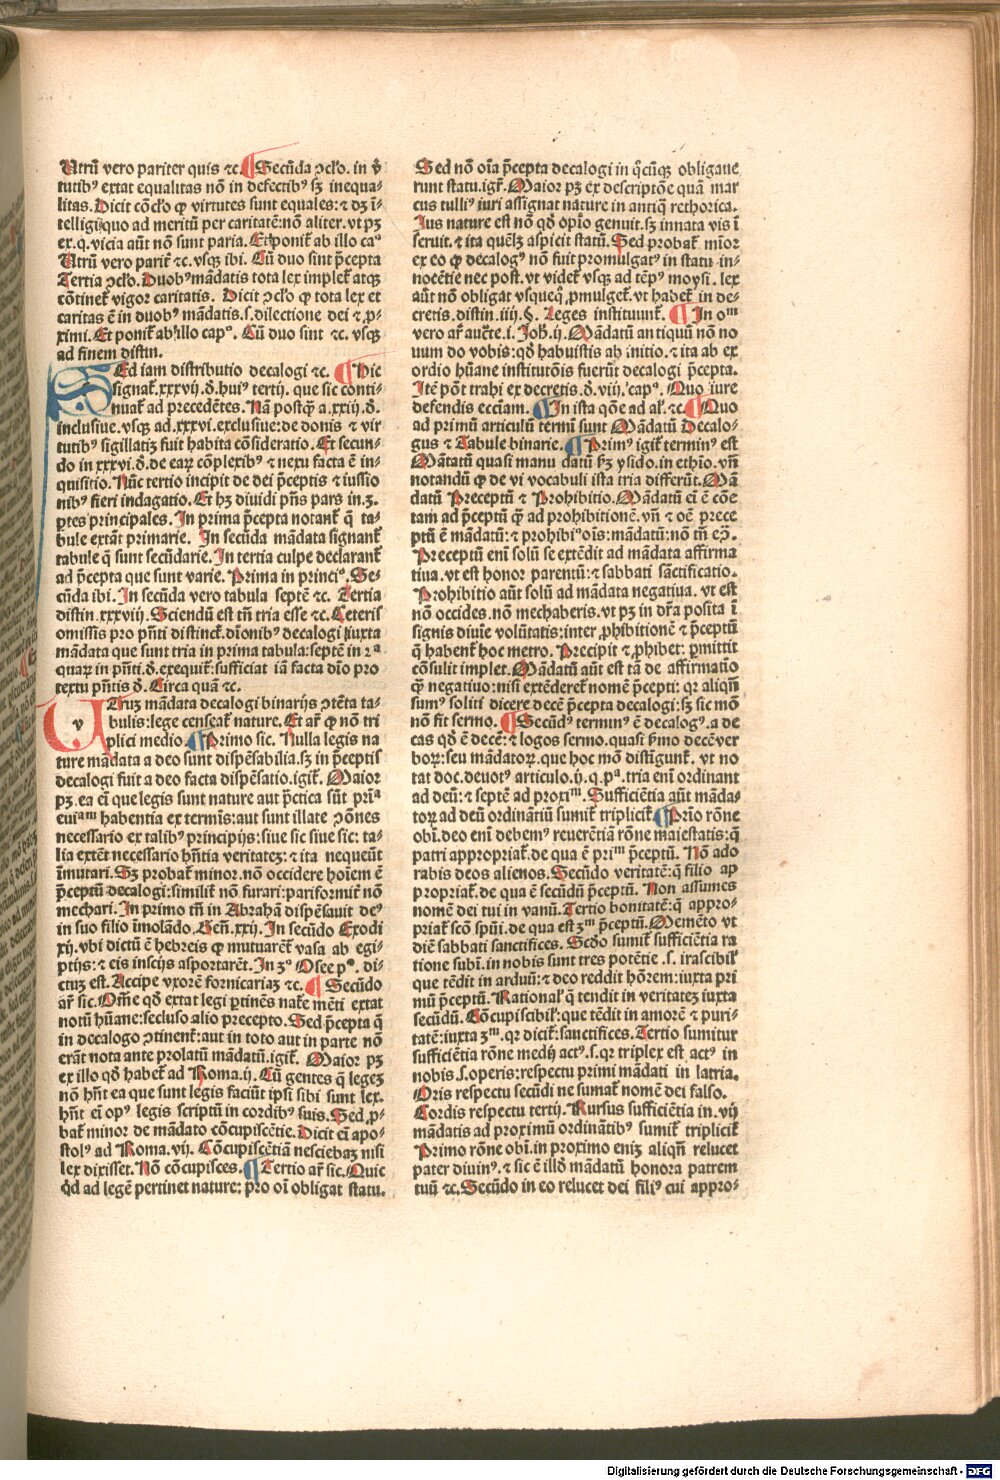 Utrũ vero pariter quis ⁊c̃. ¶ Secũda ↄclᵒ. in v̓
tutibꝰ extat equalitas nõ in defectibꝰ sꝫ inequa⸗
litas. Dicit cõcło ꝙ virtutes sunt equales: ⁊ dꝫ ĩ⸗
telligi quo ad meritũ per caritatẽ: nõ aliter. vt pꝫ
ex. q. vicia aũt nõ sunt paria. Et ponit᷑ ab illo caᵒ
Utrũ vero parit᷑ ⁊c̃. vsqꝫ ibi. Cũ duo sint p̃cepta
Tertia ↄclᵒ. Duobꝰ mãdatis tota lex implet᷑ atqꝫ
cõtinet᷑ vigor caritatis. Dicit ↄclᵒ ꝙ tota lex et
caritas ẽ in duobꝰ mãdatis. s. dilectione dei ⁊ ꝓ⸗
ximi. Et ponit᷑ ab illo capᵒ. Cũ duo sint ⁊c̃. vsqꝫ
ad finem distin.
SEd iam distributio decalogi ⁊c̃. ¶ Hic
signat᷑. xxxvij. d̃. huiꝰ tertij. que sic conti⸗
nuat᷑ ad precedẽtes. Nã postꝙ̃ a. xxiij. d̃.
inclusiue. vsqꝫ ad. xxxvi. exclusiue: de donis ⁊ vir
tutibꝰ sigillatiꝫ fuit habita cõsideratio. Et secun⸗
do in xxxvi. d̃. de eaꝝ cõplexibꝰ ⁊ nexu facta ẽ in⸗
quisitio. Nũc tertio incipit de dei p̃ceptis ⁊ iussio
nibꝰ fieri indagatio. Et hꝫ diuidi pñs pars in. 3.
ꝑtes principales. In prima p̃cepta notant᷑ q̃ ta⸗
bule extãt primarie. In secũda mãdata signant᷑
tabule q̃ sunt secũdarie. In tertia culpe declarant᷑
ad p̃cepta que sunt varie. Prima in princiᵒ. Se⸗
cũda ibi. In secũda vero tabula septẽ ⁊c̃. Tertia
distin. xxxviij. Sciendũ est tñ tria esse ⁊c̃. Ceteris
omissis pro pñti distinct᷑. diõnibꝰ decalogi iuxta
mãdata que sunt tria in prima tabula: septẽ in 2ᵃ
quaꝝ in pñti. d̃. exequit᷑: sufficiat iã facta diõ pro
textu pñtis d̃. Circa quã ⁊c̃.
UTruꝫ mãdata decalogi binarijs ↄtẽta ta⸗
bulis: lege censeat᷑ nature. Et ar̃ ꝙ nõ tri
plici medio. ¶ Primo sic. Nulla legis na
ture mãdata a deo sunt dispẽsabilia. sꝫ in p̃ceptis
decalogi fuit a deo facta dispẽsatio. igit᷑. Maior
pꝫ. ea eĩ que legis sunt nature aut p̃ctica sũt prĩᵃ
euiᵃᵐ habentia ex termis: aut sunt illate ↄ̃ones
necessario ex talibꝰ principijs: siue sic siue sic: ta⸗
lia extẽt necessario hñtia veritateꝫ: ⁊ ita nequeũt
ĩmutari. Sꝫ probat᷑ minor. nõ occidere hoiem ẽ
p̃ceptũ decalogi: similit᷑ nõ furari: pariformit᷑ nõ
mechari. In primo tñ in Abrahã dispẽsauit deꝰ
in suo filio ĩmolãdo. Geñ. xxij. In secũdo Exodi
xij. vbi dictũ ẽ hebreis ꝙ mutuarẽt᷑ vasa ab egi⸗
ptijs: ⁊ eis inscijs asportarẽt. In 3ᵒ Osee pᵒ. di⸗
ctuꝫ est. Accipe vxorẽ fornicariaꝫ ⁊c̃. ¶ Secũdo
ar̃ sic. Om̃e qd̃ extat legi ꝑtinẽs nat᷑e mẽti extat
notũ hũane: secluso alio precepto. Sed p̃cepta q̃
in decalogo ↄtinent᷑: aut in toto aut in parte nõ
erãt nota ante prolatũ mãdatũ. igit᷑. Maior pꝫ
ex illo qd̃ habet᷑ ad Roma. ij. Cũ gentes q̃ legeꝫ
nõ hñt ea que sunt legis faciũt ipsi sibi sunt lex.
hñt eĩ opꝰ legis scriptũ in cordibꝰ suis. Sed ꝓ⸗
bat᷑ minor de mãdato cõcupiscẽtie. Dicit eĩ apo⸗
stolꝰ ad Roma. vij. Cõcupiscẽtiã nesciebaꝫ nisi
lex dixisset. Nõ cõcupisces. ¶ Tertio ar̃ sic. Quic
qd̃ ad legẽ pertinet nature: pro oĩ obligat statu.
Sed nõ oĩa p̃cepta decalogi in q̃cũqꝫ obligaue
runt statu. igit᷑. Maior pꝫ ex descriptõe quã mar
cus tulliꝰ iuri assignat nature in antiq̃ rethorica.
Ius nature est nõ qd̃ opio̓ genuit. sꝫ innata vis ĩ
seruit. ⁊ ita quẽlꝫ aspicit statũ. Sed probat᷑ mĩor
ex eo ꝙ decalogꝰ nõ fuit promulgatꝰ in statu in⸗
nocẽtie nec post. vt videt᷑ vsqꝫ ad tẽpꝰ moysi. lex
aũt nõ obligat vsquequ ꝓmulget᷑. vt habet᷑ in de⸗
cretis. distin. iiij. §. Leges instituunt᷑. ¶ In oᵐ
vero ar̃ aucte̓. i. Ioh̃. ij. Mãdatũ antiquũ nõ no
uum do vobis: qd̃ habuistis ab initio. ⁊ ita ab ex
ordio hũane institutõis fuerũt decalogi p̃cepta.
Itẽ põt trahi ex decretis. d̃. viij. capᵒ. Quo iure
defendis eccĩam. ¶ In ista qõe ad al᷑. ⁊c̃. ¶ Quo
ad primũ articulũ termĩ sunt Mãdatũ Decalo⸗
gus ⁊ Tabule binarie. ¶ Primꝰ igit᷑ terminꝰ est
Mãtatũ quasi manu datũ ẜꝫ ysido. in ethio. vñ
notandũ ꝙ de vi vocabuli ista tria differũt. Mã
datũ Preceptũ ⁊ Prohibitio. Mãdatũ eĩ ẽ cõe
tam ad p̃ceptũ qꝫ̃ ad prohibitionẽ. vñ ⁊ oẽ prece
ptũ ẽ mãdatũ: ⁊ prohibiᵒ ois: mãdatũ: nõ tñ eↄ̃.
Preceptũ enĩ solũ se extẽdit ad mãdata affirma
tiua. vt est honor parentũ: ⁊ sabbati sãctificatio.
Prohibitio aũt solũ ad mãdata negatiua. vt est
nõ occides. nõ mechaberis. vt pꝫ in dr̃a posita ĩ
signis diuie̓ volũtatis: inter ꝓhibitionẽ ⁊ p̃ceptũ
q̃ habent᷑ hoc metro. Precipit ⁊ ꝓhibet: ꝑmittit
cõsulit implet. Mãdatũ aũt est tã de affirmatio
qꝫ̃ negatiuo: nisi extẽderet᷑ nomẽ p̃cepti: qꝛ aliqñ
sumꝰ soliti dicere decẽ p̃cepta decalogi: sꝫ sic mõ
nõ fit sermo. ¶ Secũdꝰ terminꝰ ẽ decalogꝰ. a de
cas qd̃ ẽ decẽ: ⁊ logos sermo. quasi p̃mo decẽ ver
boꝝ: seu mãdatoꝝ. que hoc mõ distĩgunt᷑. vt no
tat doc. deuotꝰ articulo. ij. q. pᵃ. tria enĩ ordinant
ad deũ: ⁊ septẽ ad proxiᵐ. Sufficiẽtia aũt mãda⸗
toꝝ ad deũ ordinãtiũ sumit᷑ triplicit᷑ ¶ Prĩo rõne
obĩ. deo enĩ debemꝰ reuerẽtiã rõne maiestatis: q̃
patri appropriat᷑. de qua ẽ priᵐ p̃ceptũ. Nõ ado
rabis deos alienos. Secũdo veritatẽ: q̃ filio ap
propriat᷑. de qua ẽ secũdũ p̃ceptũ. Non assumes
nomẽ dei tui in vanũ. Tertio bonitatẽ: q̃ appro⸗
priat᷑ scõ spũi. de qua est 3ᵐ p̃ceptũ. Memẽto vt
diẽ sabbati sanctifices. Scd̃o sumit᷑ sufficiẽtia ra
tione subĩ. in nobis sunt tres potẽtie .s. irascibil᷑
que tẽdit in arduũ: ⁊ deo reddit hõrem: iuxta pri
mũ p̃ceptũ. Rational᷑ q̃ tendit in veritateꝫ iuxta
secũdũ. Cõcupiscibil᷑: que tẽdit in amorẽ ⁊ puri⸗
tatẽ: iuxta 3ᵐ. qꝛ dicit᷑: sanctifices. Tertio sumitur
sufficiẽtia rõne medij actꝰ. s. qꝛ triplex est actꝰ in
nobis. s. operis: respectu primi mãdati in latria.
Oris respectu secũdi ne sumat᷑ nomẽ dei falso.
Cordis respectu tertij. Rursus sufficiẽtia in. vij
mãdatis ad proximũ ordinãtibꝰ sumit᷑ triplicit᷑
Primo rõne obĩ. in proximo enĩꝫ aliqñ relucet
pater diuinꝰ. ⁊ sic ẽ illd̃ mãdatũ honora patrem
tuũ ⁊c̃. Secũdo in eo relucet dei filiꝰ cui appro⸗
Digitalisierung gefördert durch die Deutsche Forschungsgemeinschaft - DFG